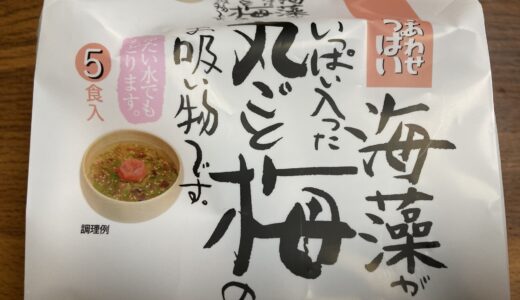 しあわせ
いっぱい
海藻が
いっぱい入った
丸ごと梅の
お吸い物です。
5食入
冷たい水でも
戻ります。
調理例